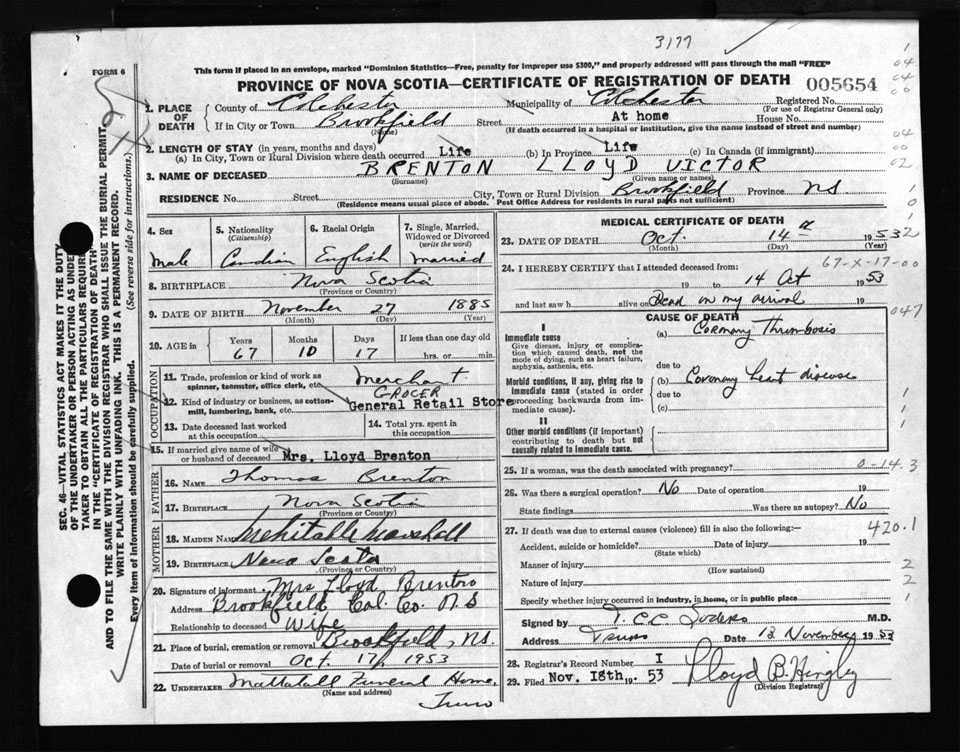 3177
FORM 6
This form if placed in an envelope, marked "Dominion Statistics—Free, penalty for improper use $300," and properly addressed will pass through the mail "FREE"
PROVINCE OF NOVA SCOTIA—CERTIFICATE OF REGISTRATION OF DEATH 005654
1. PLACE OF DEATH County of Colchester Municipality of Colchester Registered No.
(For use of Registrar General only)
If in City or Town Brookfield Street At home House No.
(Name) (If death occurred in a hospital or institution, give the name instead of street and number)
2. LENGTH OF STAY (in years, months and days)
(a) In City, Town or Rural Division where death occurred Life (b) In Province Life (c) In Canada (if immigrant)
3. NAME OF DECEASED BRENTON LLOYD VICTOR
(Surname) (Given name or names)
RESIDENCE No. Street City, Town or Rural Division Brookfield Province N.S
(Residence means usual place of abode. Post Office Address for residents in rural parts not sufficient)
4. Sex 5. Nationality (Citizenship) 6. Racial Origin 7. Single, Married, Widowed or Divorced (write the word)
Male Canadian English Married
8. BIRTHPLACE Nova Scotia
(Province or Country)
9. DATE OF BIRTH November 27 1885
(Month) (Day) (Year)
10. AGE in Years Months Days If less than one day old
67 10 17 hrs. or min.
OCCUPATION
11. Trade, profession or kind of work as spinner, teamster, office clerk, etc. Merchant
GROCER
12. Kind of industry or business, as cotton-mill, lumbering, bank, etc. General Retail Store
13. Date deceased last worked at this occupation 14. Total yrs. spent in this occupation
15. If married give name of wife or husband of deceased Mrs. Lloyd Brenton
FATHER
16. NAME Thomas Brenton
17. BIRTHPLACE Nova Scotia
(Province or Country)
MOTHER
18. MAIDEN NAME Mehitable Marshall
19. BIRTHPLACE Nova Scotia
(Province or Country)
20. Signature of informant Mrs Lloyd Brenton
Address Brookfield Col. Co. N S
Relationship to deceased Wife
21. Place of burial, cremation or removal Brookfield, N.S.
Date of burial or removal Oct. 17, 1953
22. UNDERTAKER Mattatall Funeral Home,
(Name and address)
Truro
MEDICAL CERTIFICATE OF DEATH
23. DATE OF DEATH Oct. 14 1953 2
(Month) (Day) (Year)
67-X-17-00
24. I HEREBY CERTIFY that I attended deceased from:
19 to 14 Oct 1953
and last saw h alive on Dead on my arrival
CAUSE OF DEATH 047
I
Immediate cause
Give disease, injury or complication which caused death, not the mode of dying, such as heart failure, asphyxia, asthenia, etc.
(a) Coronary Thrombosis
due to
Morbid conditions, if any, giving rise to immediate cause (stated in order proceeding backwards from immediate cause).
(b) Coronary heart disease
due to
(c)
II
Other morbid conditions (if important) contributing to death but not causally related to immediate cause.
25. If a woman, was the death associated with pregnancy? 0-14.3
26. Was there a surgical operation? No Date of operation 19
State findings Was there an autopsy? No
27. If death was due to external causes (violence) fill in also the following:— 420.1
Accident, suicide or homicide? Date of injury 19
(State which)
Manner of injury
(How sustained)
Nature of injury
Specify whether injury occurred in industry, in home, or in public place
Signed by M.D.
Address Truro Date 13 November 1953
28. Registrar's Record Number I
29. Filed Nov. 18th 19. 53 Lloyd B. Hingley
(Division Registrar)
SEC. 46—VITAL STATISTICS ACT MAKES IT THE DUTY
OF THE UNDERTAKER OR PERSON ACTING AS UNDER-
TAKER TO OBTAIN ALL THE PARTICULARS REQUIRED
IN THE "CERTIFICATE OF REGISTRATION OF DEATH"
AND TO FILE THE SAME WITH THE DIVISION REGISTRAR WHO SHALL ISSUE THE BURIAL PERMIT.
WRITE PLAINLY WITH UNFADING INK. THIS IS A PERMANENT RECORD.
Every item of information should be carefully supplied. (See reverse side for instructions.)